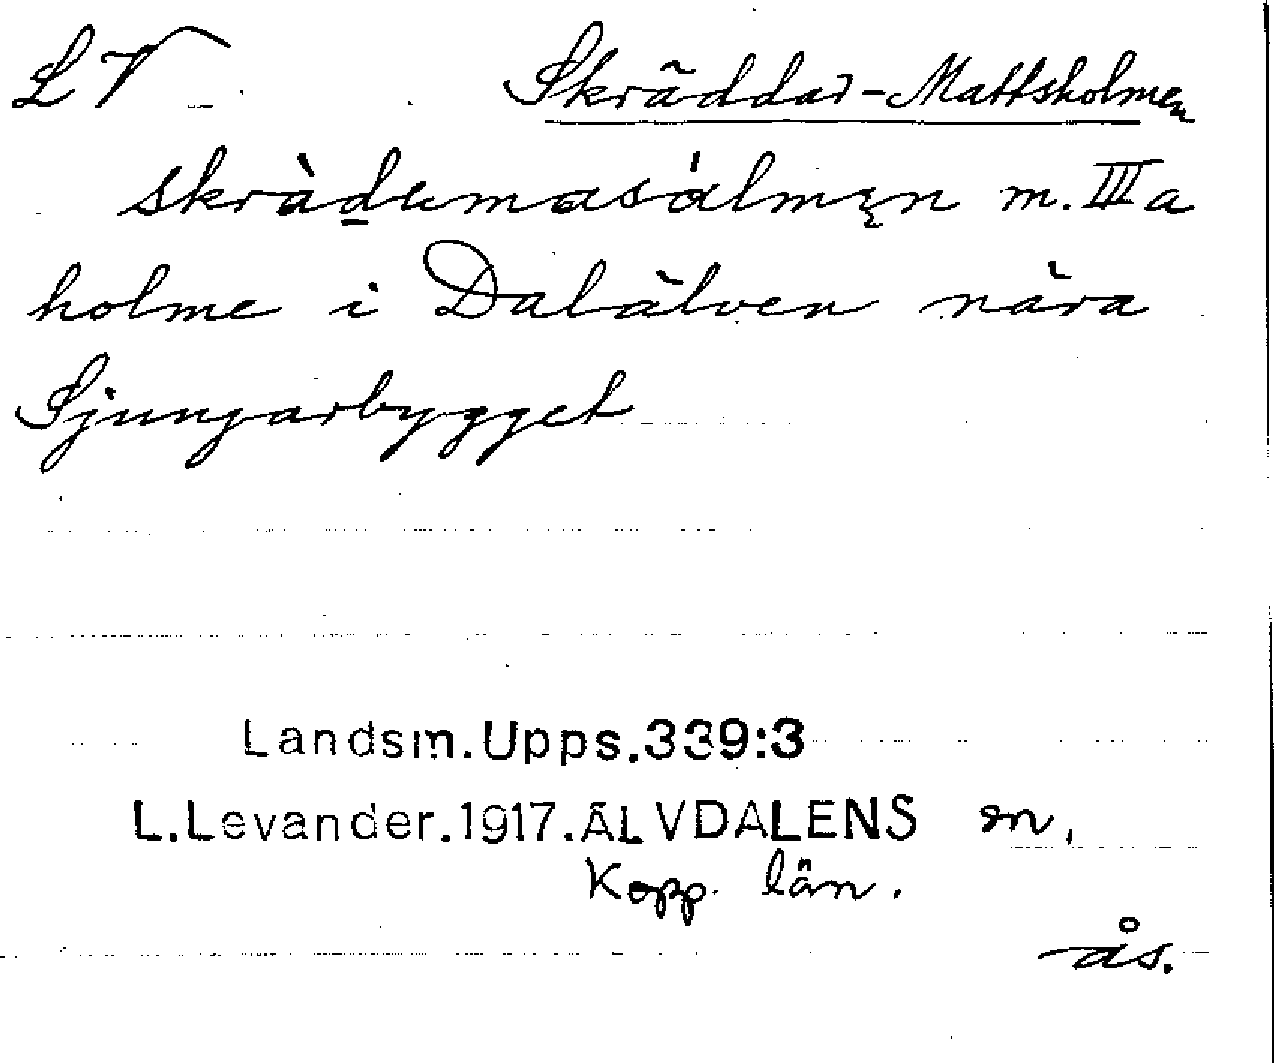 LV Skräddar-Mattsholmen
skràd̲umasálmęn m. III a
holme i Dalälven nära
Sjungarbygget
Landsm.Upps.339:3
L.Levander.1917.ÄLVDALENS sn,
Kopp. län.
ås.